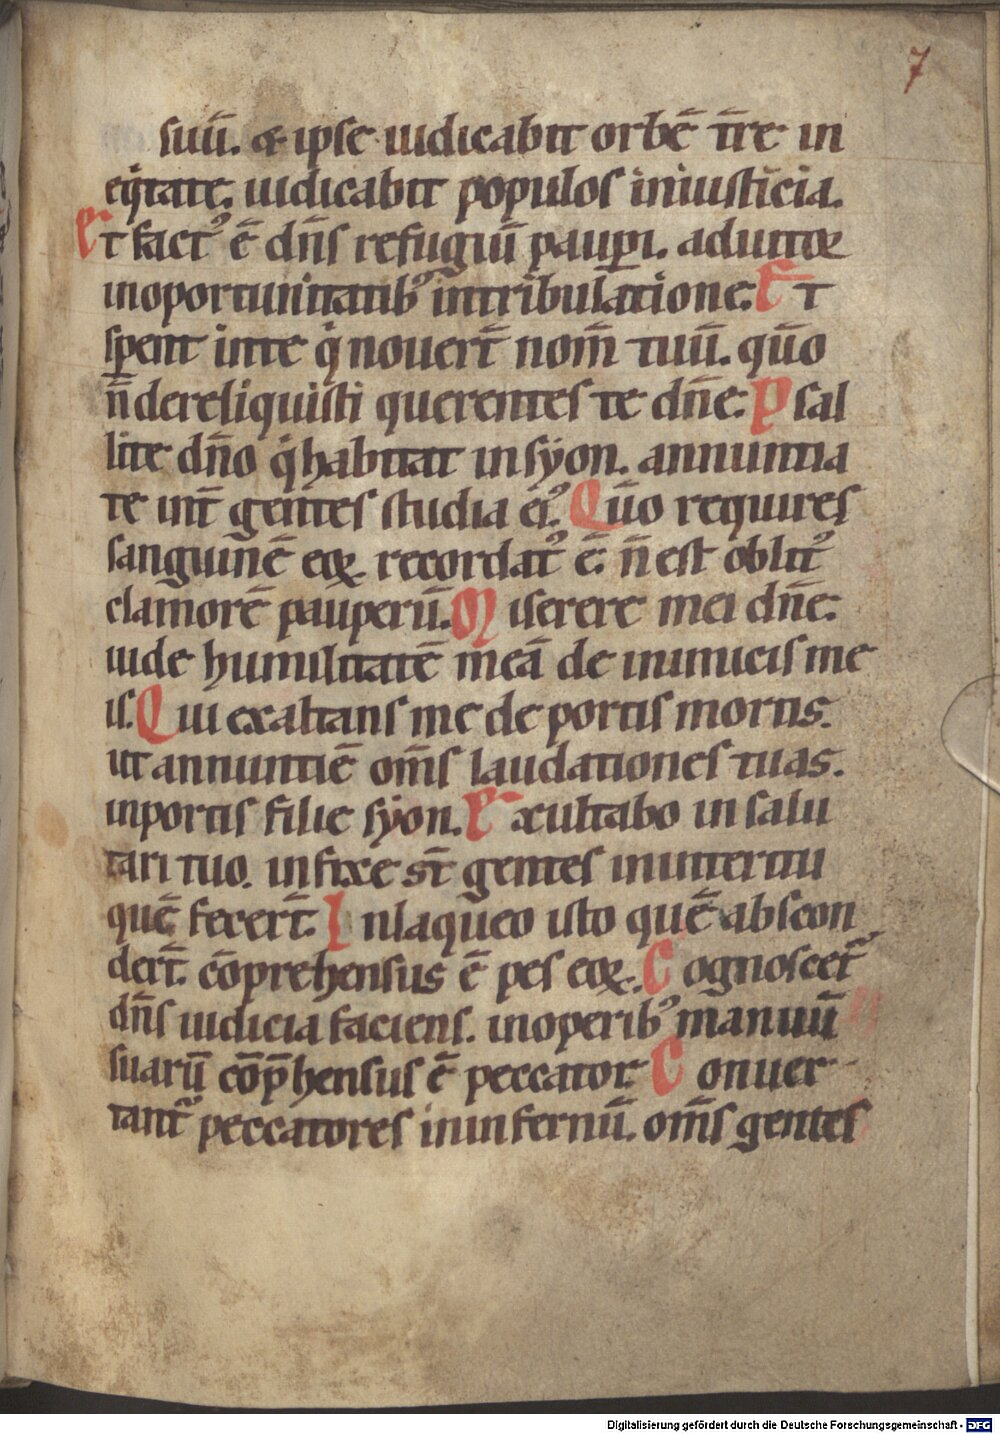 7
suū. & ipse iudicabit orbē t̄re in
eq̇tate. iudicabit populos iniusticia.
Et fact᾽ ē dn̄s refugiū paup̲i. adiutoꝝ
inoportunitatib᾽ intribulatione. Et
sꝑent inte q̇ nouert̄ nom̄ tuū. qūo
n̄ dereliquisti querentes te dn̄e. Psal
lite dn̄o q̇ habitat insyon. annuntia
te int̄ gentes studia ei᾽. Qūo requires
sanguinē eoꝝ recordat᾽ ē. n̄ est oblit᾽
clamorē pauperū. Miserere mei dn̄e.
uide humilitatē meā de inimicis me
is. Qui exaltans me de portis mortis.
ut annuntiē om̄s laudationes tuas.
inportis filie syon. Exultabo in salu
tari tuo. infixe st̄ gentes inutteritu
quē fecert̄. Inlaqueo isto quē abscon
dert̄. cōprehensus ē pes eoꝝ. Cognoscet᾽
dn̄s iudicia faciens. inoperib᾽ manuū
suarū cōp̄hensus ē peccator. Conuer
tant᾽ peccatores ininfernū. om̄s gentes
Digitalisierung gefördert durch die Deutsche Forschungsgemeinschaft - DFG